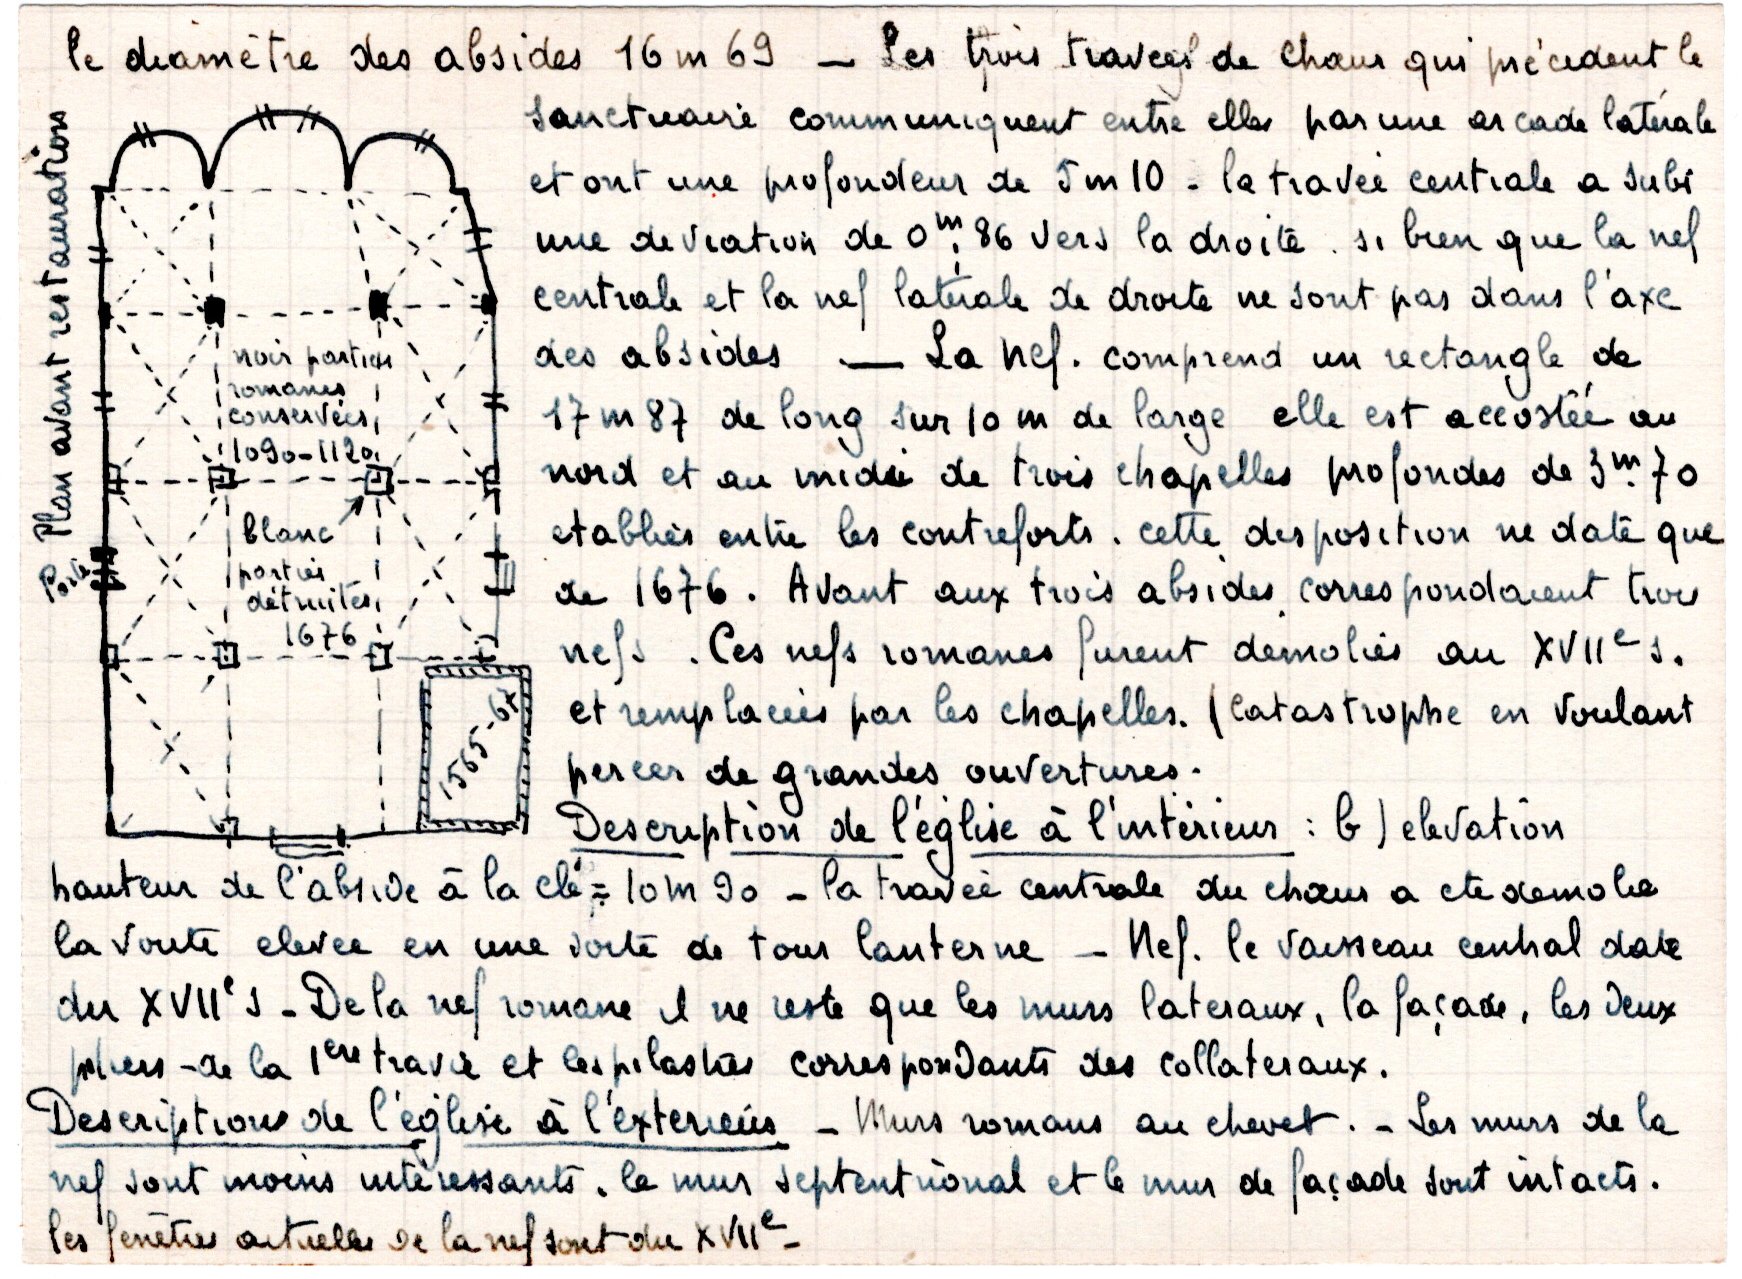 le diamètre des absides 16 m 69 — Les trois travées de chœur qui précèdent le
sanctuaire communiquent entre elles par une arcade latérale
et ont une profondeur de 5 m 10 - la travée centrale a subi
une déviation de 0m,86 vers la droite. si bien que la nef
centrale et la nef latérale de droite ne sont pas dans l'axe
des absides — La Nef. comprend un rectangle de
17 m 87 de long sur 10 m de large elle est accostée au
nord et au midi de trois chapelles profondes de 3m.70
etablies entre les contreforts. cette disposition ne date que
de 1676. Avant aux trois absides correspondaient trois
nefs. Ces nefs romanes furent démolies au XVIIe s.
et remplacées par les chapelles. (Catastrophe en voulant
percer de grandes ouvertures.
Plan avant restaurations
noir parties
romanes
conservées
1090-1120
blanc
parties
détruites
1676
Porte
1565-67
Description de l'église à l'intérieur : b) elevation
hauteur de l'abside à la clé = 10 m 90 - la travée centrale du chœur a ete demolie
la voute elevee en une sorte de tour lanterne - Nef. le vaisseau central date
du XVIIe s - De la nef romane il ne reste que les murs lateraux, la façade, les deux
piliers - de la 1ere travée et les pilastres correspondants des collateraux.
Description de l'église à l'exterieur - Murs romans au chevet. - Les murs de la
nef sont moins intéressants. le mur septentrional et le mur de façade sont intacts.
les fenêtres actuelles de la nef sont du XVIIe -